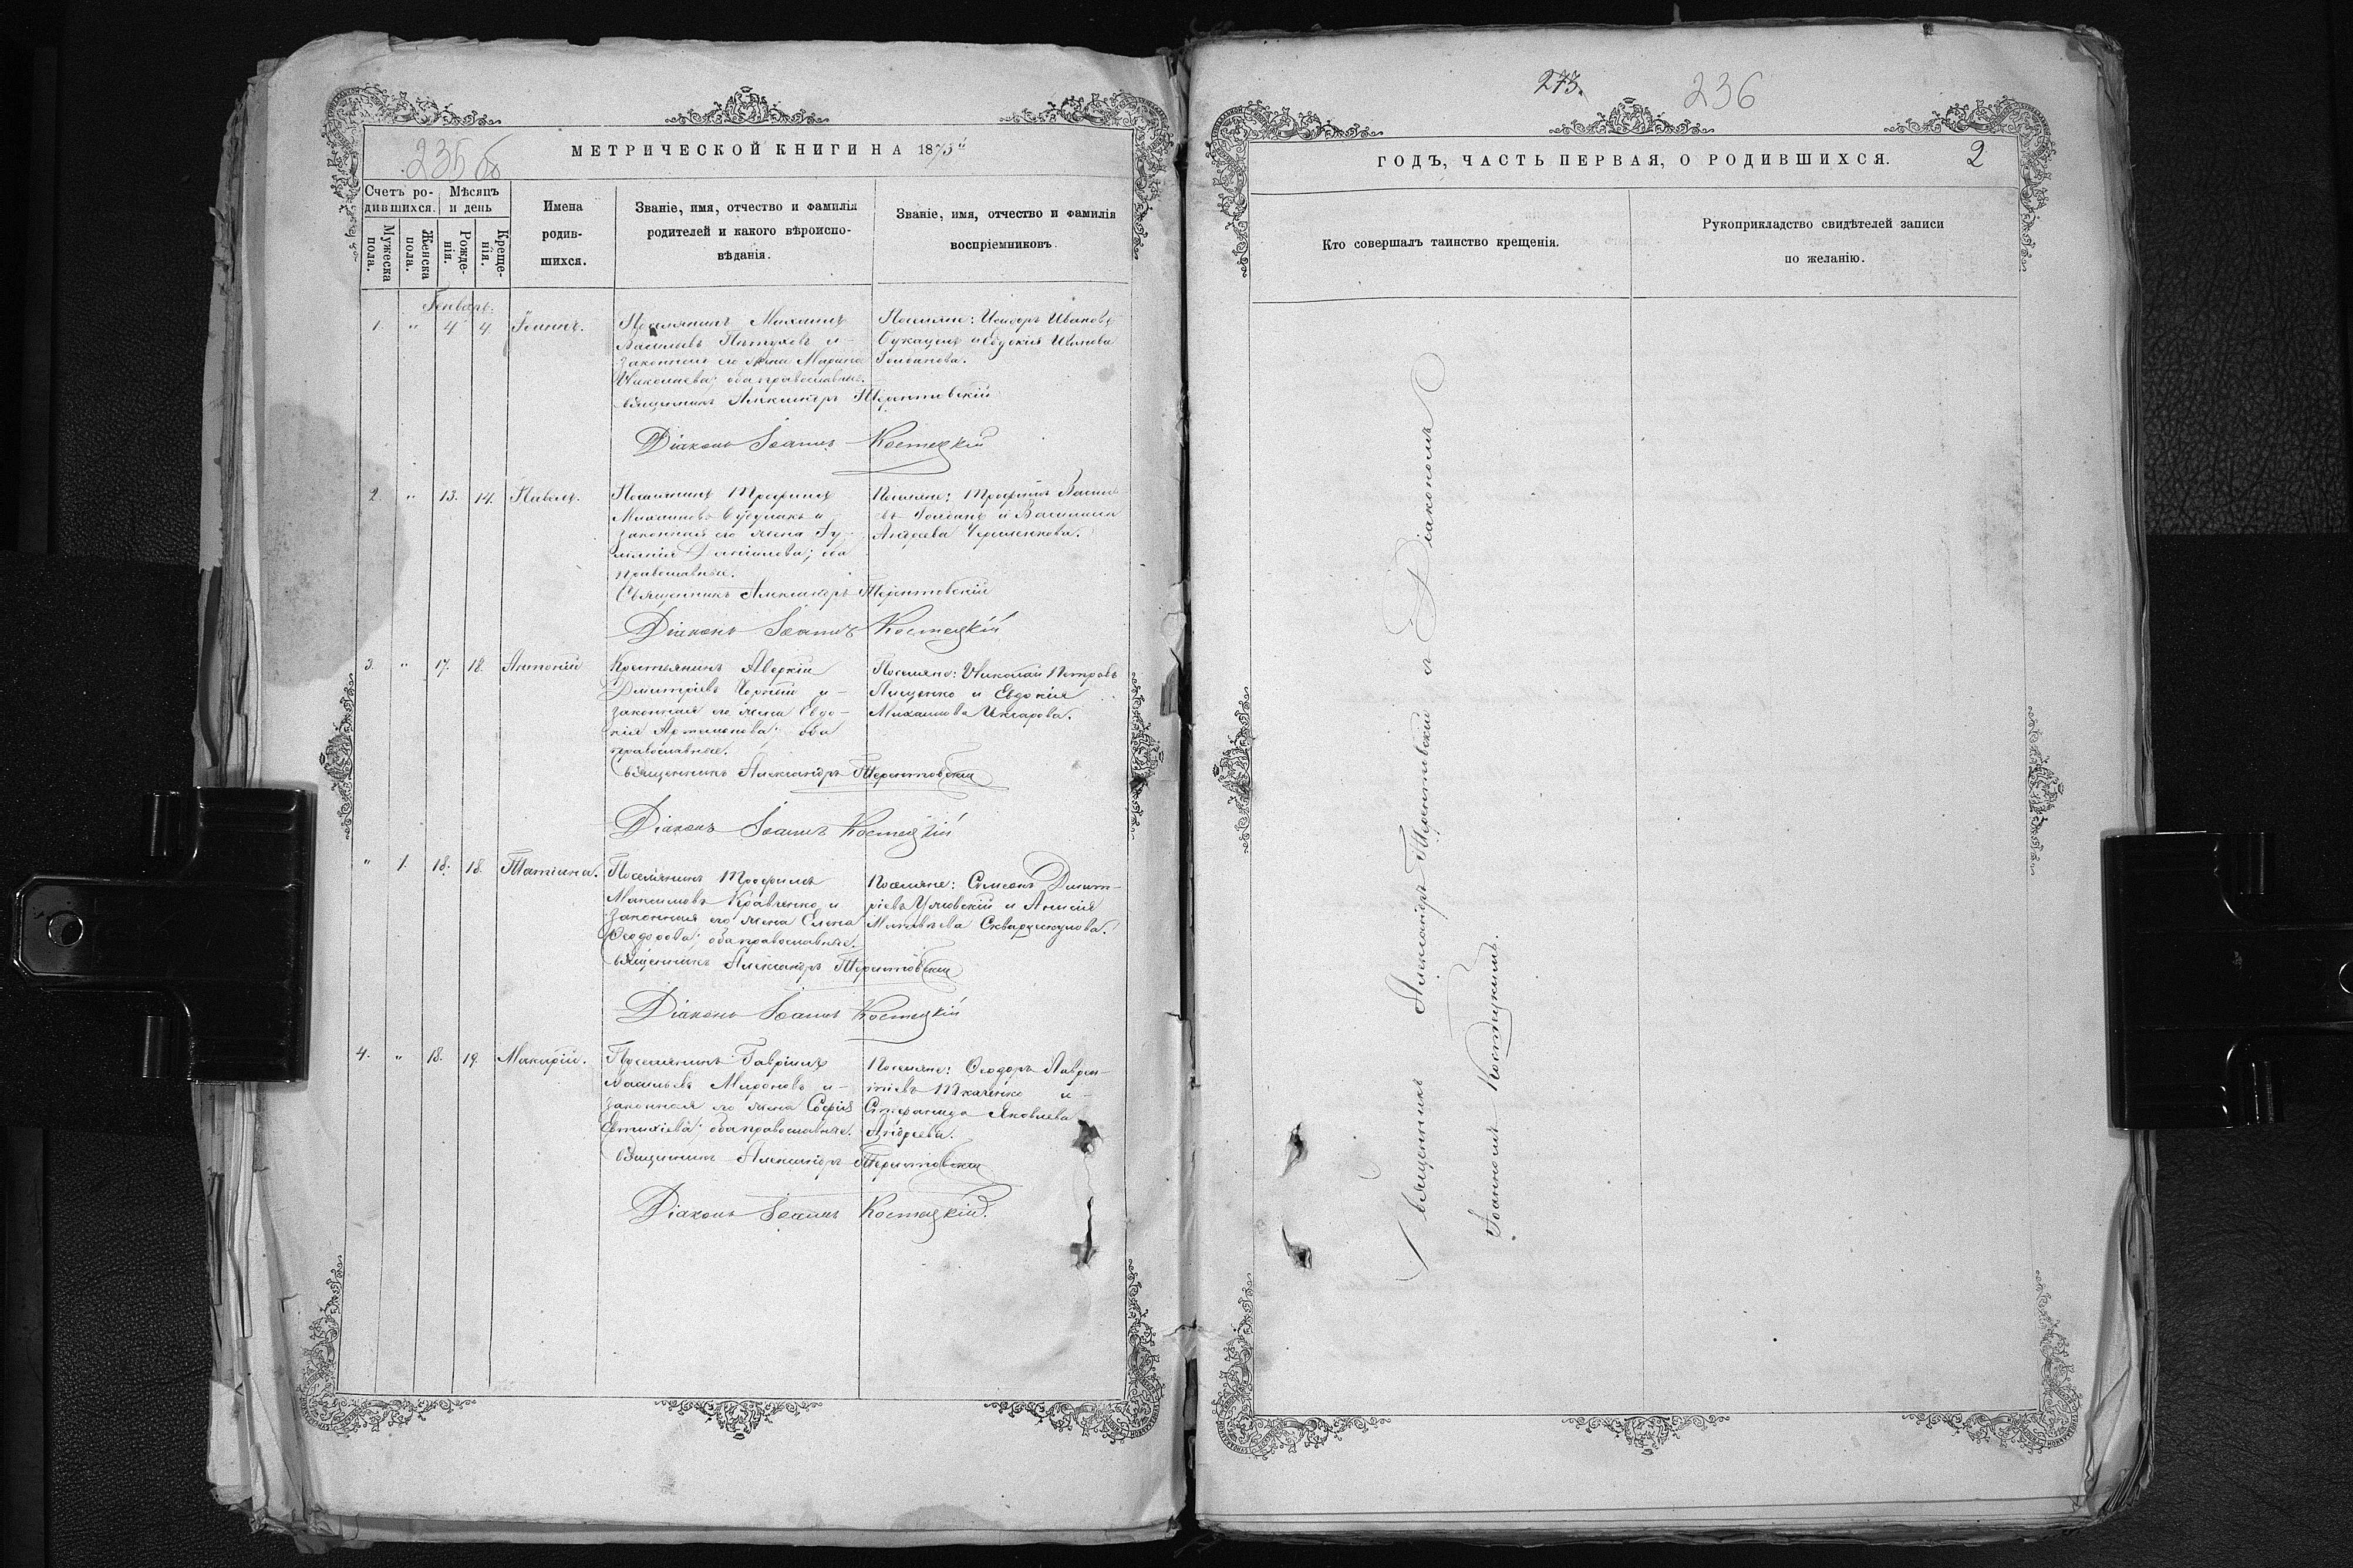 235 об
МЕТРИЧЕСКОЙ КНИГИ НА 1875й
Счетъ ро-
дившихся.
Мѣсяцъ
и день
Мужеска
пола.
Женска
пола.
Рожде-
нія.
Креще-
нія.
Имена
родив-
шихся.
Званіе, имя, отчество и фамилія
родителей и какого вѣроиспо-
вѣданія.
Званіе, имя, отчество и фамилія
воспріемниковъ.
Генварь.
1. " 4 4 Іоаннъ.
Поселянинъ Михаилъ
Васильевъ Пѣтуховъ и
законная его жена Марина
Николаева; оба православные.
Поселяне: Исидоръ Ивановъ
и Евдокія Иванова
Священникъ Александръ Терентовскій
Діаконъ Іоаннъ Костецкій
2. " 13. 14. Павелъ.
Поселянинъ Трофимъ
законная его жена
Даніилова; оба
православные.
Поселяне: Трофимъ Василь-
евъ и Василиса
Андреева
Священникъ Александръ Терентовскій
Діаконъ Іоаннъ Костецкій
3. " 17. 18. Антоній
Крестьянинъ Аверкій
Дмитріевъ Чорный и
законная его жена Евдо-
кія Артемонова; оба
православные.
Поселяне: Николай Петровъ
и Евдокія
Михаилова
Священникъ Александръ Терентовскій
Діаконъ Іоаннъ Костецкій
" 1. 18. 18. Татіана.
Поселянинъ Трофимъ
Максимовъ Кравченко и
законная его жена Елена
Ѳеодорова; оба православные.
Поселяне: Симеонъ Димит-
ріевъ и Анисія
Матвѣева
Священникъ Александръ Терентовскій
Діаконъ Іоаннъ Костецкій
4. " 18. 19. Макарій.
Поселянинъ Гавріилъ
Васильевъ Мироновъ и
законная его жена Софія
Евтихіева; оба православные.
Поселяне: Ѳеодоръ Лаврен-
тіевъ Ткаченко и
Стефанида Яковлева
Андреева.
Священникъ Александръ Терентовскій
Діаконъ Іоаннъ Костецкій.
273.
236
ГОДЪ, ЧАСТЬ ПЕРВАЯ, О РОДИВШИХСЯ.
2
Кто совершалъ таинство крещенія.
Рукоприкладство свидѣтелей записи
по желанію.
Священникъ Александръ Терентовскій съ Діакономъ
Іоанномъ Костецкимъ.